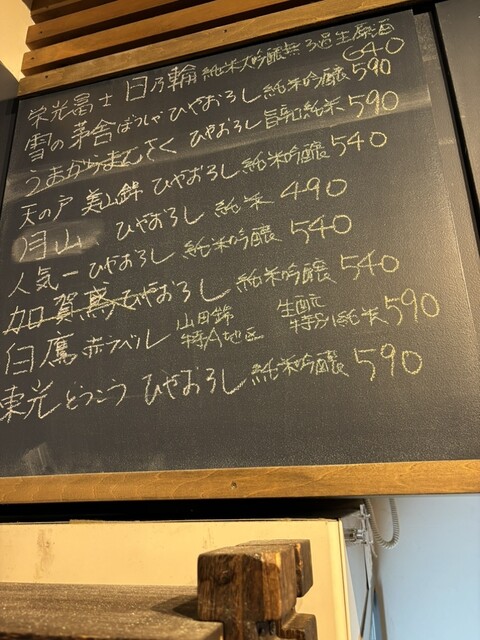 栄光冨士 日乃輪 純米大吟醸無ろ過生原酒 640
雪の茅舎 ひやおろし 純米吟醸 590
うまからまんさく ひやおろし 旨辛口純米 590
天の戸 美山錦 ひやおろし 純米吟醸 540
月山、ひやおろし 純米 490
人気一 ひやおろし 純米吟醸 540
加賀鳶 ひやおろし 純米吟醸 540
白鷹 赤ラベル 山田錦 特A地区 生酛 特別純米 590
東光 とうこう ひやおろし 純米吟醸 590